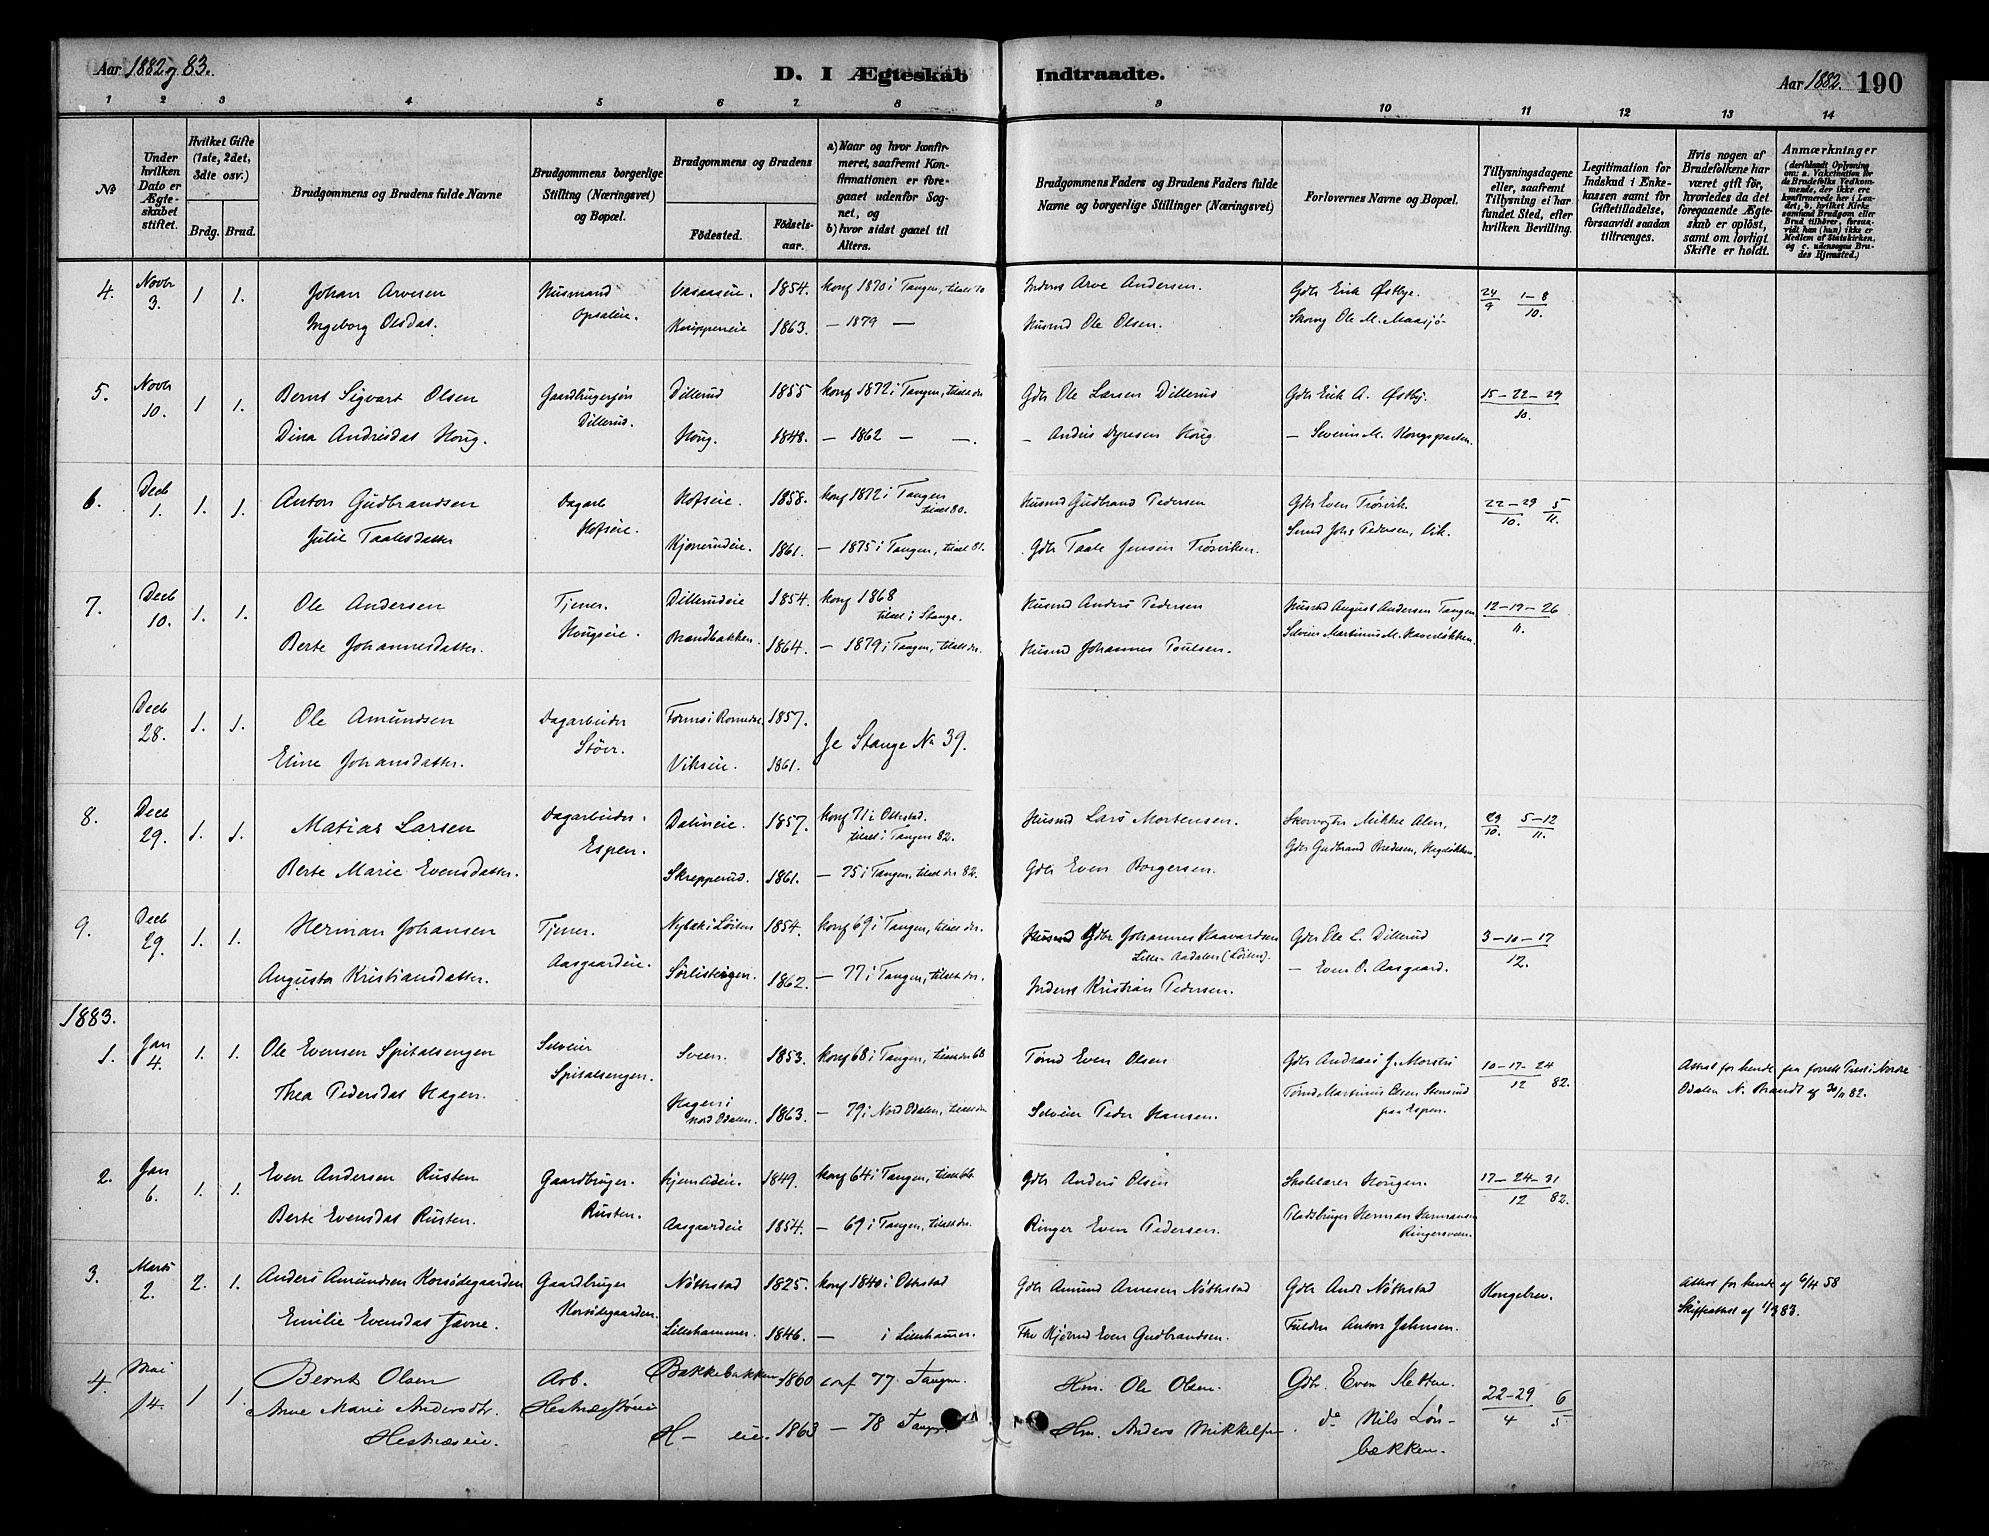 Aar 1882 og 83.
D. I Ægteskab Indtraadte.
Aar 1882. 190
1 2 3 4 5 6 7 8 9 10 11 12 13 14
No
Under hvilken Dato er Ægteskabet stiftet.
Hvilket Gifte (1ste, 2det, 3die osv.)
Brdg. Brud.
Brudgommens og Brudens fulde Navne
Brudgommens borgerlige Stilling (Næringsvei) og Bopæl.
Brudgommens og Brudens
Födested. Födselsaar.
a) Naar og hvor konfirmeret, saafremt Konfirmationen er foregaaet udenfor Sognet, og
b) hvor sidst gaaet til Alters.
Brudgommens Faders og Brudens Faders fulde Navne og borgerlige Stillinger (Næringsvei)
Forlovernes Navne og Bopæl.
Tillysningsdagene eller, saafremt Tillysning ei har fundet Sted, efter hvilken Bevilling.
Legitimation for Indskud i Enkekassen samt for Giftetilladelse, forsaavidt saadan tiltrænges.
Hvis nogen af Brudefolkene har været gift för, hvorledes da det foregaaende Ægteskab er oplöst, samt om lovligt Skifte er holdt.
Anmærkninger
(deriblandt Oplysning om: a. Vaccination for de Brudefolks Vedkommende, der ikke ere konfirmerede her i Landet; b. hvilket Kirkesamfund Brudgom eller Brud tilhörer, forsaavidt han (hun) ikke er Medlem af Statskirken, og c. udensogns Brudes Hjemsted.)
4. Novbr 3. 1 1. Johan Arvesen Husmand Opsaleie. 1854. konf 1870 i Tangen, Inderst Arve Andersen. Gdbr Erik Østbye. 24/9 1-8/10.
Ingeborg Olsdat. 1863. — 1879 — Husmd Ole Olsen. Skomg Ole M. Maasjø
5. Novbr 10. 1 1. Bernt Sigvart Olsen Gaardbrugersøn Dillerud. Dillerud 1855 konf 1872 i Tangen, Gdbr Ole Larsen Dillerud Gdbr Erik A. Østby. 15-22-29/10.
Dina Andersdat Houg. Houg. 1848. — 1862 — —. — Severin M. Kongsparten.
6. Decb 1. 1. 1. Anton Gudbrandsen Dagarb Hofseie. Hofseie. 1858. konf 1872 i Tangen tilalt 80. Husmd Gudbrand Pedersen Gdbr Even Trøsvik. 22-29/10. 5/11.
Julie Taalesdatter 1861. — 1875 i Tangen, tilalt 81. Gdbr Taale Jensen Trøsviken. Johs Pedersen, Vik.
7. Decb 10. 1. 1. Ole Andersen Tjener. Hougseie. Dillerudeie 1854. konf 1868 tilalt i Stange. Husmd Anders Pedersen Husmd August Andersen Tangen 12-19-26/11.
Berte Johannesdatter. Brandbakken. 1864. — 1879 i Tangen, tilalt do. Husmd Johannes Poulsen. Selveier Martinus M.
Decb 28. 1. 1. Ole Amundsen Dagarbeider Støer. 1857. Se Stange No 39.
Eline Johansdatter. Vikseie. 1861.
8. Decb 29. 1. 1. Matias Larsen Dagarbeider. Espen. Dalineie. 1857. konf 71 i Ottestad. tilalt i Tangen 82. Husmd Lars Mortensen. Skovvogter Mikkel Alm, 29/10. 5-12/11.
Berte Marie Evensdatter. Skrepperud. 1861. — 75 i Tangen, tilalt der 82. Gdbr Even Borgersen. Gdbr Gudbrand Bredesen,
9. Decb 29. 1. 1. Herman Johansen Tjener. Aasgaardeie. 1854. konf 69 i Tangen, tilalt do. Gdbr Johannes Haavardsen Lille-Aadalen (Løiten). Gdbr Ole L. Dillerud 3-10-17/12.
Augusta Kristiansdatter. 1862. — 77 i Tangen, tilalt do. Inderst Kristian Pedersen. — Even O. Aasgaard.
1883.
1. Jan 4. 1. 1. Ole Evensen Spitalsengen Selveier Spitalsengen. Sveen. 1853. konf 68 i Tangen, tilalt der 68 Tømd Even Olsen Gdbr Andreas J. Morstu 10-17-24/12 82. Attest for hende fra forrett Præst i Nordre
Thea Pedersdat Hagen. Hagen i Nord Odalen. 1863. — 79 i Nord Odalen, Selveier Peder Hansen. Tømd Martinus Olsen Stensrud paa Espen. Odalen N. Brandt af 30/11 82.
2. Jan 6. 1. 1. Even Andersen Rusten Gaardbruger. Rusten. 1849. konf 64 i Tangen, Gdbr Anders Olsen Skolelærer Hougen. 17-24-31/12 82.
Berte Evensdat Rusten. Aasgaardeie 1854. — 69 i Tangen, tilalt do. Ringer Even Pedersen. Pladsbruger Herman Hermansen Ringersveen.
3. Marts 2. 2. 1. Anders Amundsen Korsødegaarden Gaardbruger Korsødegaarden. Nøttestad 1825. konf 1840 i Ottestad Gdbr Amund Arnesen Nøttestad Gdbr And. Nøttestad Kongebrev. Attest for hende af 6/4 58
Emilie Evensdat Javne. Lillehammer. 1846. — i Lillehamer. Even Gudbrandsen. Anton Johnsen. Skifteattest af 1/3 83.
4. Mai 14. 1 1. Bernt Olsen Arb. Bakkebakken 1860 conf 77. Tangen. Hm. Ole Olsen. Gdbr. Even Sletten. 22-29/4 6/5
Anne Marie Andersdtr. Hestnæseie. H— eie. 1863 — 78 Tangen. Hm. Anders Mikkelsen. do Nils Lønbækken.